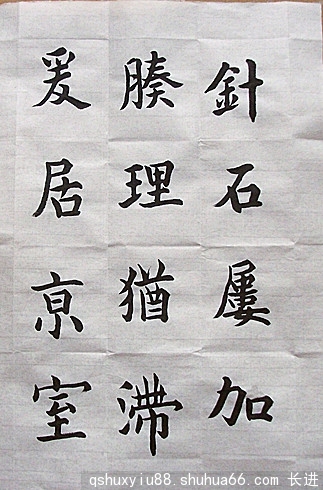 針石屢加
腠理猶滯
爰居京室
qshuxyiu88.shuhua66.com/长进